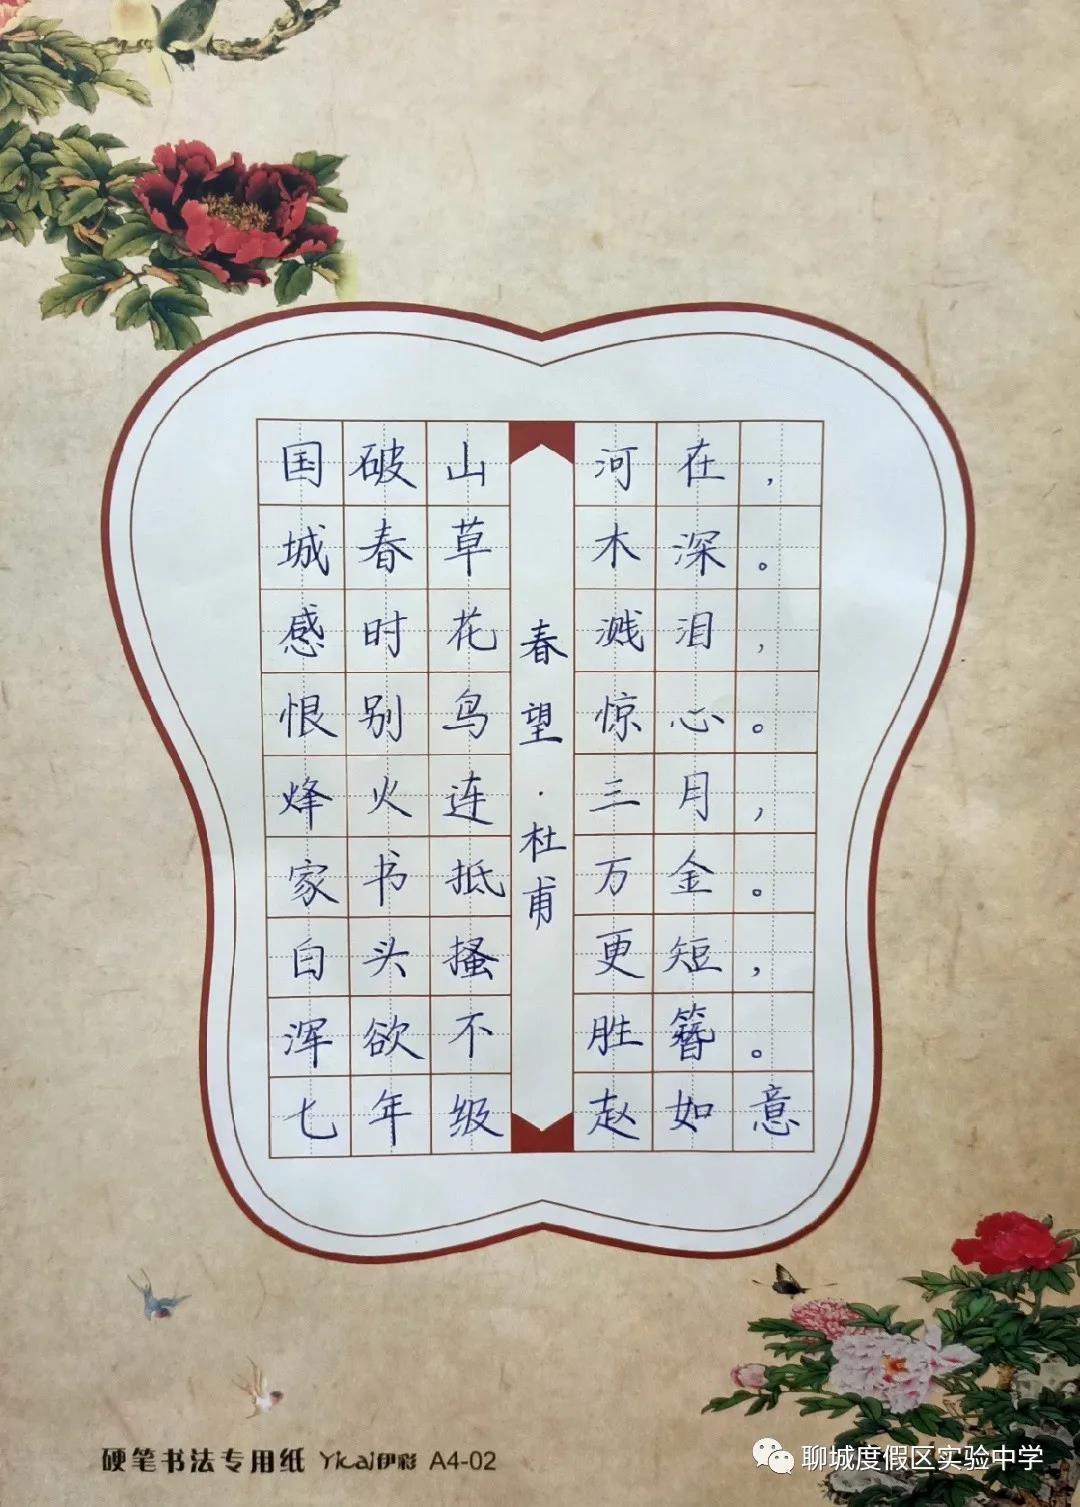 春望·杜甫
国破山河在，
城春草木深。
感时花溅泪，
恨别鸟惊心。
烽火连三月，
家书抵万金。
白头搔更短，
浑欲不胜簪。
七年级赵如意
硬笔书法专用纸 Yicai伊彩 A4-02
聊城度假区实验中学